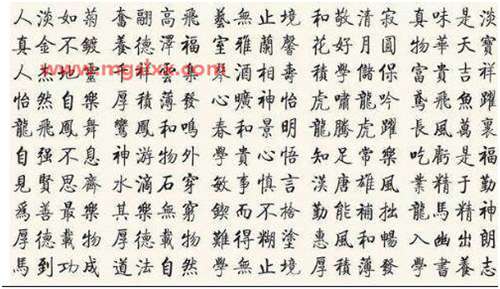 人淡如菊 奮翮高飛 藝無止境 和敬清寂 真味是淡
真金不鍍 養德澤福 室雅蘭馨 花好月圓 物華天寶
人杰地靈 積學儲 富貴吉祥
www.mgzlxx.com
怡然自樂 厚積薄發 心曠神怡 虎嘯龍吟 鳶飛魚躍
龍飛鳳舞 鸞鳳和鳴 春和景明 龍騰虎躍 長風萬裏
自强不息 神游物外 學貴心悟 知足常樂 吃虧是福
見賢思齊 水滴石穿 敏事慎言 漢唐雄風 業精于勤
爲善最樂 其樂無窮 鍥而不捨 勤能補拙 龍馬精神
厚德載物 厚德載物 難得糊塗 惠風和暢 入幽出朗
馬到功成 道法自然 學無止境 厚積薄發 學書養志